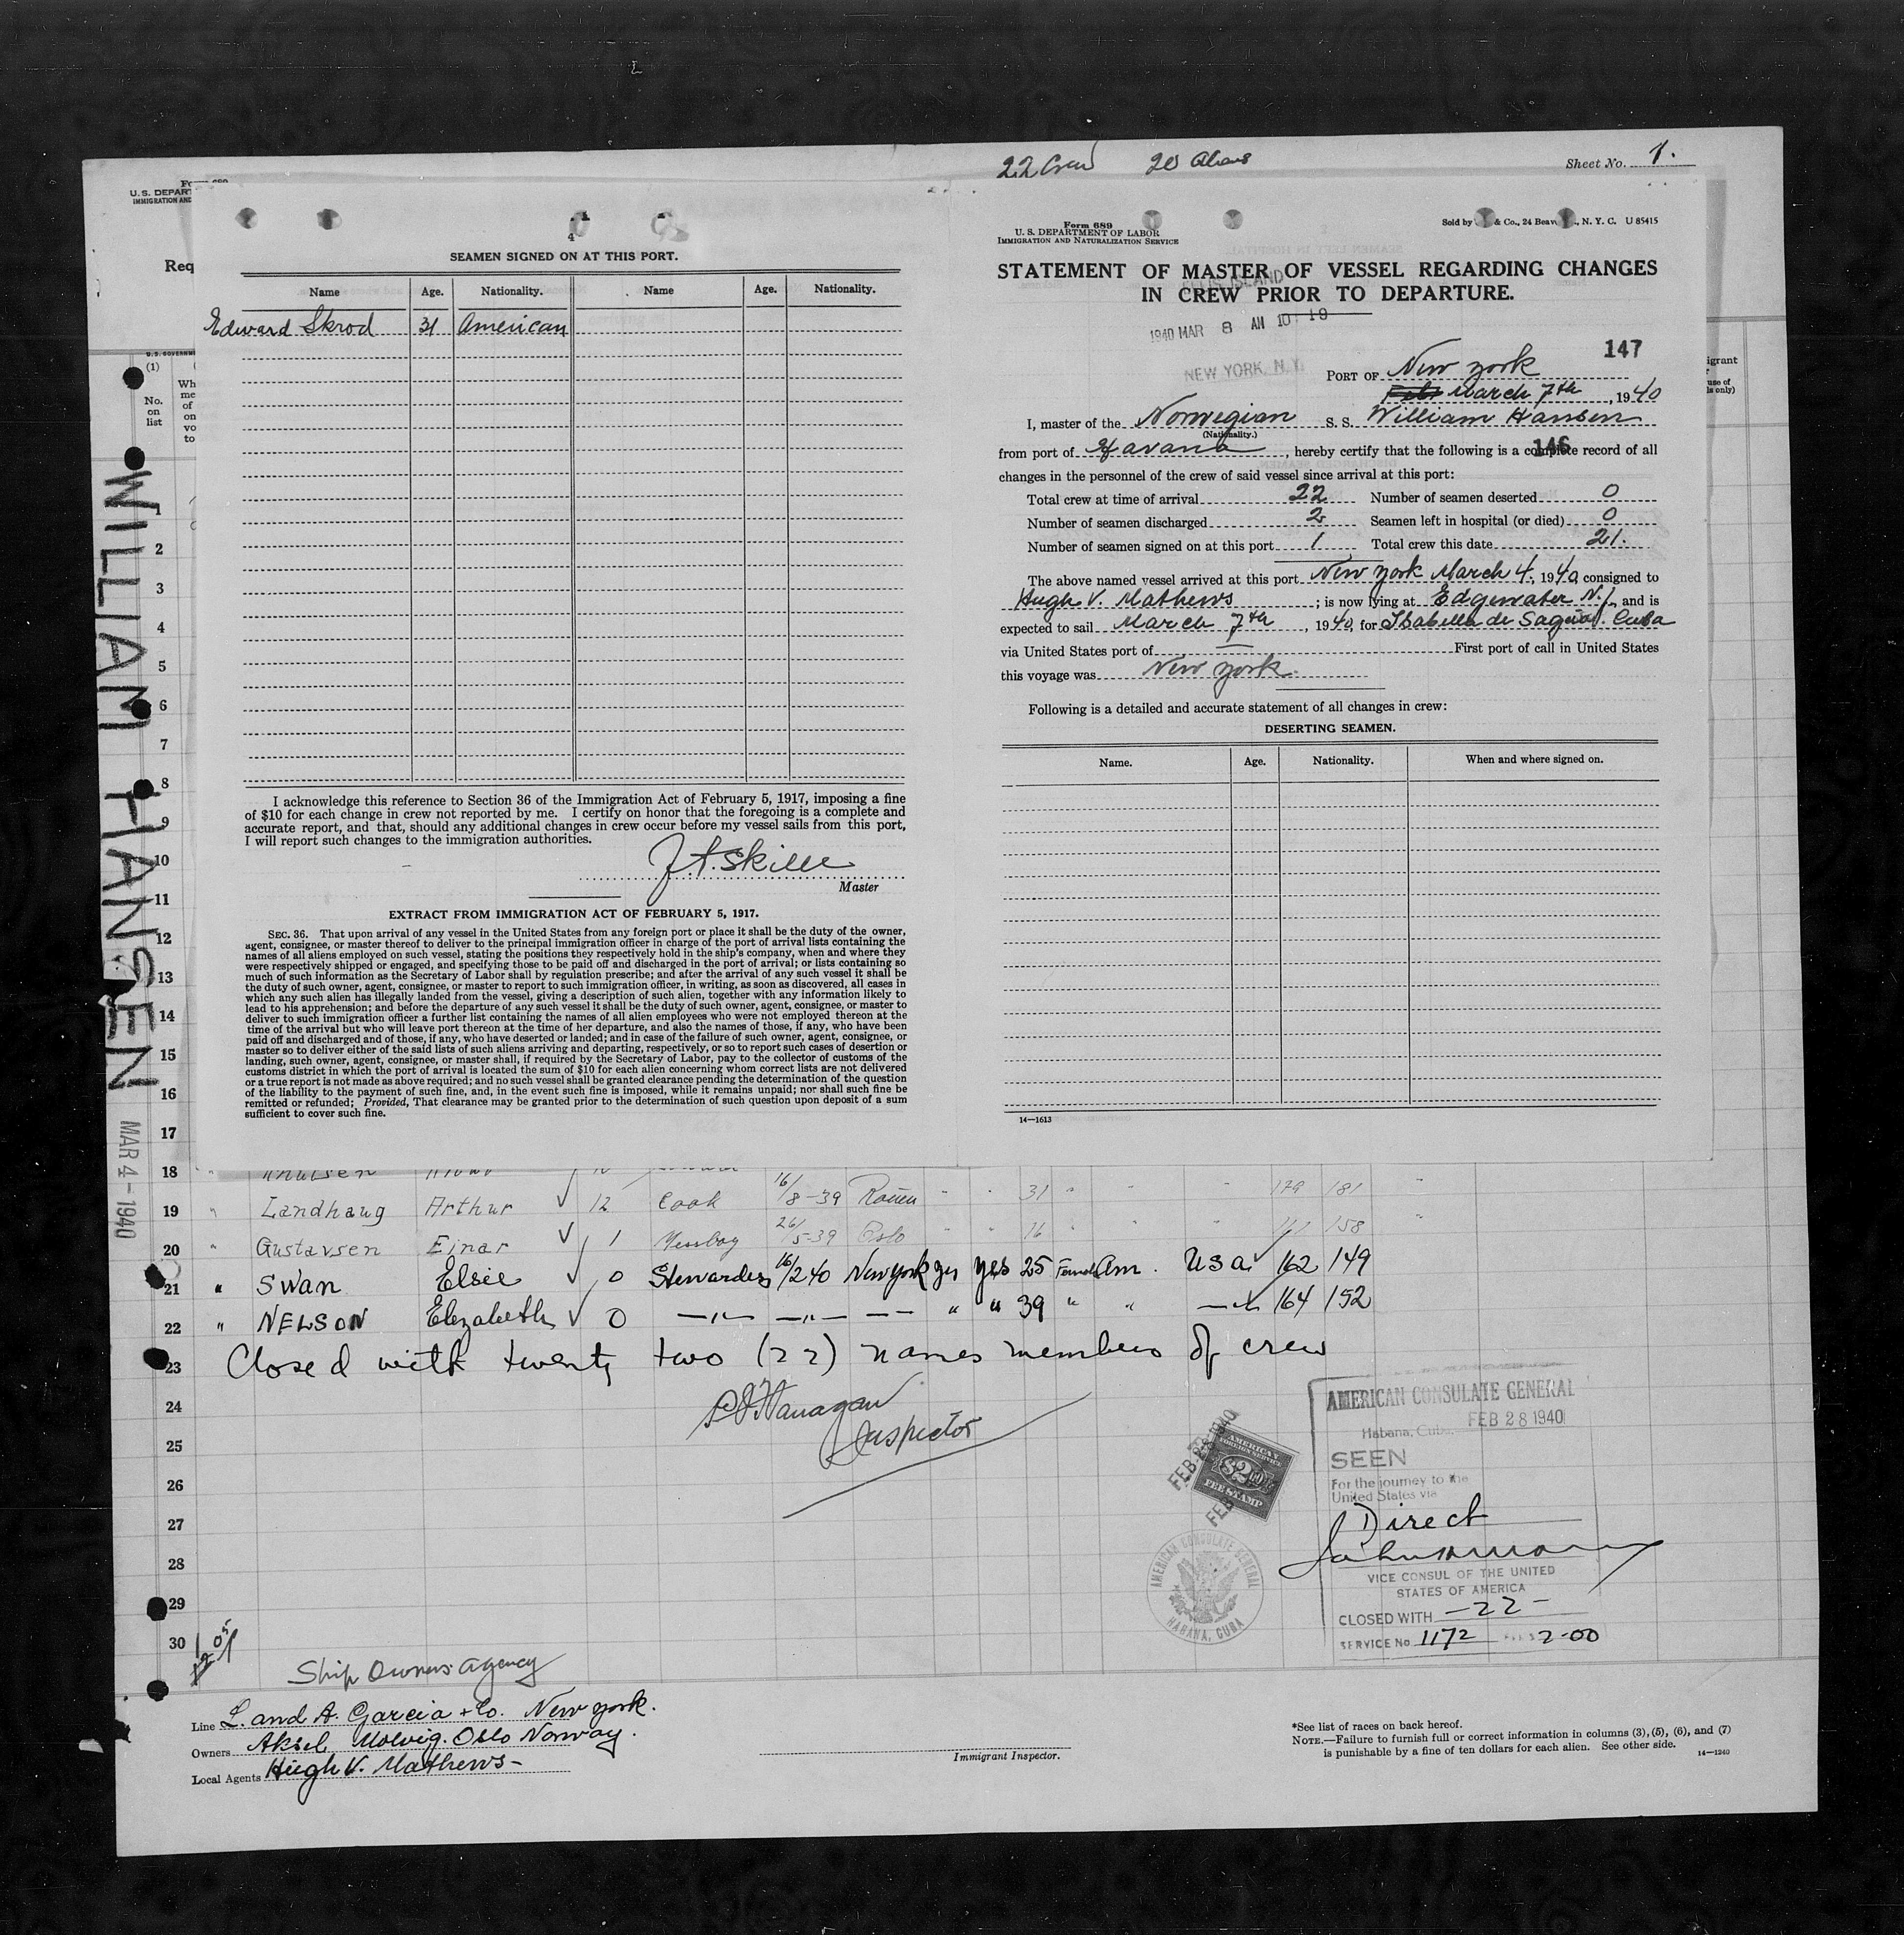 22 Crew 20 Aliens
Sheet No. 1.
U. S. DEPAR
IMMIGRATION AND
Req
4
SEAMEN SIGNED ON AT THIS PORT.
Name Age. Nationality. Name Age. Nationality.
Edward Skrod 31 American
I acknowledge this reference to Section 36 of the Immigration Act of February 5, 1917, imposing a fine
of $10 for each change in crew not reported by me. I certify on honor that the foregoing is a complete and
accurate report, and that, should any additional changes in crew occur before my vessel sails from this port,
I will report such changes to the immigration authorities.
Master
EXTRACT FROM IMMIGRATION ACT OF FEBRUARY 5, 1917.
SEC. 36. That upon arrival of any vessel in the United States from any foreign port or place it shall be the duty of the owner,
agent, consignee, or master thereof to deliver to the principal immigration officer in charge of the port of arrival lists containing the
names of all aliens employed on such vessel, stating the positions they respectively hold in the ship's company, when and where they
were respectively shipped or engaged, and specifying those to be paid off and discharged in the port of arrival; or lists containing so
much of such information as the Secretary of Labor shall by regulation prescribe; and after the arrival of any such vessel it shall be
the duty of such owner, agent, consignee, or master to report to such immigration officer, in writing, as soon as discovered, all cases in
which any such alien has illegally landed from the vessel, giving a description of such alien, together with any information likely to
lead to his apprehension; and before the departure of any such vessel it shall be the duty of such owner, agent, consignee, or master to
deliver to such immigration officer a further list containing the names of all alien employees who were not employed thereon at the
time of the arrival but who will leave port thereon at the time of her departure, and also the names of those, if any, who have been
paid off and discharged and of those, if any, who have deserted or landed; and in case of the failure of such owner, agent, consignee, or
master so to deliver either of the said lists of such aliens arriving and departing, respectively, or so to report such cases of desertion or
landing, such owner, agent, consignee, or master shall, if required by the Secretary of Labor, pay to the collector of customs of the
customs district in which the port of arrival is located the sum of $10 for each alien concerning whom correct lists are not delivered
or a true report is not made as above required; and no such vessel shall be granted clearance pending the determination of the question
of the liability to the payment of such fine, and, in the event such fine is imposed, while it remains unpaid; nor shall such fine be
remitted or refunded; Provided, That clearance may be granted prior to the determination of such question upon deposit of a sum
sufficient to cover such fine.
Form 689
U. S. DEPARTMENT OF LABOR
IMMIGRATION AND NATURALIZATION SERVICE
Sold by & Co., 24 Beav , N. Y. C. U 85415
STATEMENT OF MASTER OF VESSEL REGARDING CHANGES
IN CREW PRIOR TO DEPARTURE.
ELLIS ISLAND
1940 MAR 8 AM 10 19
NEW YORK, N.Y.
147
PORT OF New York
March 7th, 1940
I, master of the Norwegian S. S. William Hansen
(Nationality.)
from port of Havana, hereby certify that the following is a complete record of all
146
changes in the personnel of the crew of said vessel since arrival at this port:
Total crew at time of arrival 22 Number of seamen deserted 0
Number of seamen discharged 2 Seamen left in hospital (or died) 0
Number of seamen signed on at this port 1 Total crew this date 21.
The above named vessel arrived at this port New York March 4, 1940, consigned to
Hugh V. Mathews; is now lying at Edgewater N.J., and is
expected to sail March 7th, 1940, for Isabella de Sagua. Cuba
via United States port of — First port of call in United States
this voyage was New York.
Following is a detailed and accurate statement of all changes in crew:
DESERTING SEAMEN.
Name. Age. Nationality. When and where signed on.
14—1613
WILLIAM HANSEN
MAR 4-1940
(1)
No.
on
list
1
2
3
4
5
6
7
8
9
10
11
12
13
14
15
16
17
18 Knutsen
19 " Landhaug Arthur 12 Cook 16/8-39 Rouen " " 31 " " " 179 181 "
20 " Gustavsen Einar 1 Messboy 26/5-39 Oslo " " 16 " " " 158 "
21 " SWAN Elsie 0 Stewardess 16/2 40 New York yes yes 25 Female Am. USA 162 149
22 " NELSON Elizabeth 0 —"— —"— —— " " 39 " " —"— 164 152
23 Closed with twenty two (22) names members of crew
24
25 Inspector
26
27
28
29
30
AMERICAN CONSULATE GENERAL
FEB 28 1940
Habana, Cuba.
SEEN
For the journey to the
United States via
Direct
VICE CONSUL OF THE UNITED
STATES OF AMERICA
CLOSED WITH —22—
SERVICE No. 1172 2.00
AMERICAN
FOREIGN SERVICE
$2.00
FEE STAMP
AMERICAN CONSULATE GENERAL
HABANA, CUBA
Ship Owners Agency
Line L. and A. Garcia + Co. New York.
Owners Aksel Molvig. Oslo Norway.
Local Agents Hugh V. Mathews —
Immigrant Inspector.
*See list of races on back hereof.
NOTE.—Failure to furnish full or correct information in columns (3), (5), (6), and (7)
is punishable by a fine of ten dollars for each alien. See other side.
14—1240